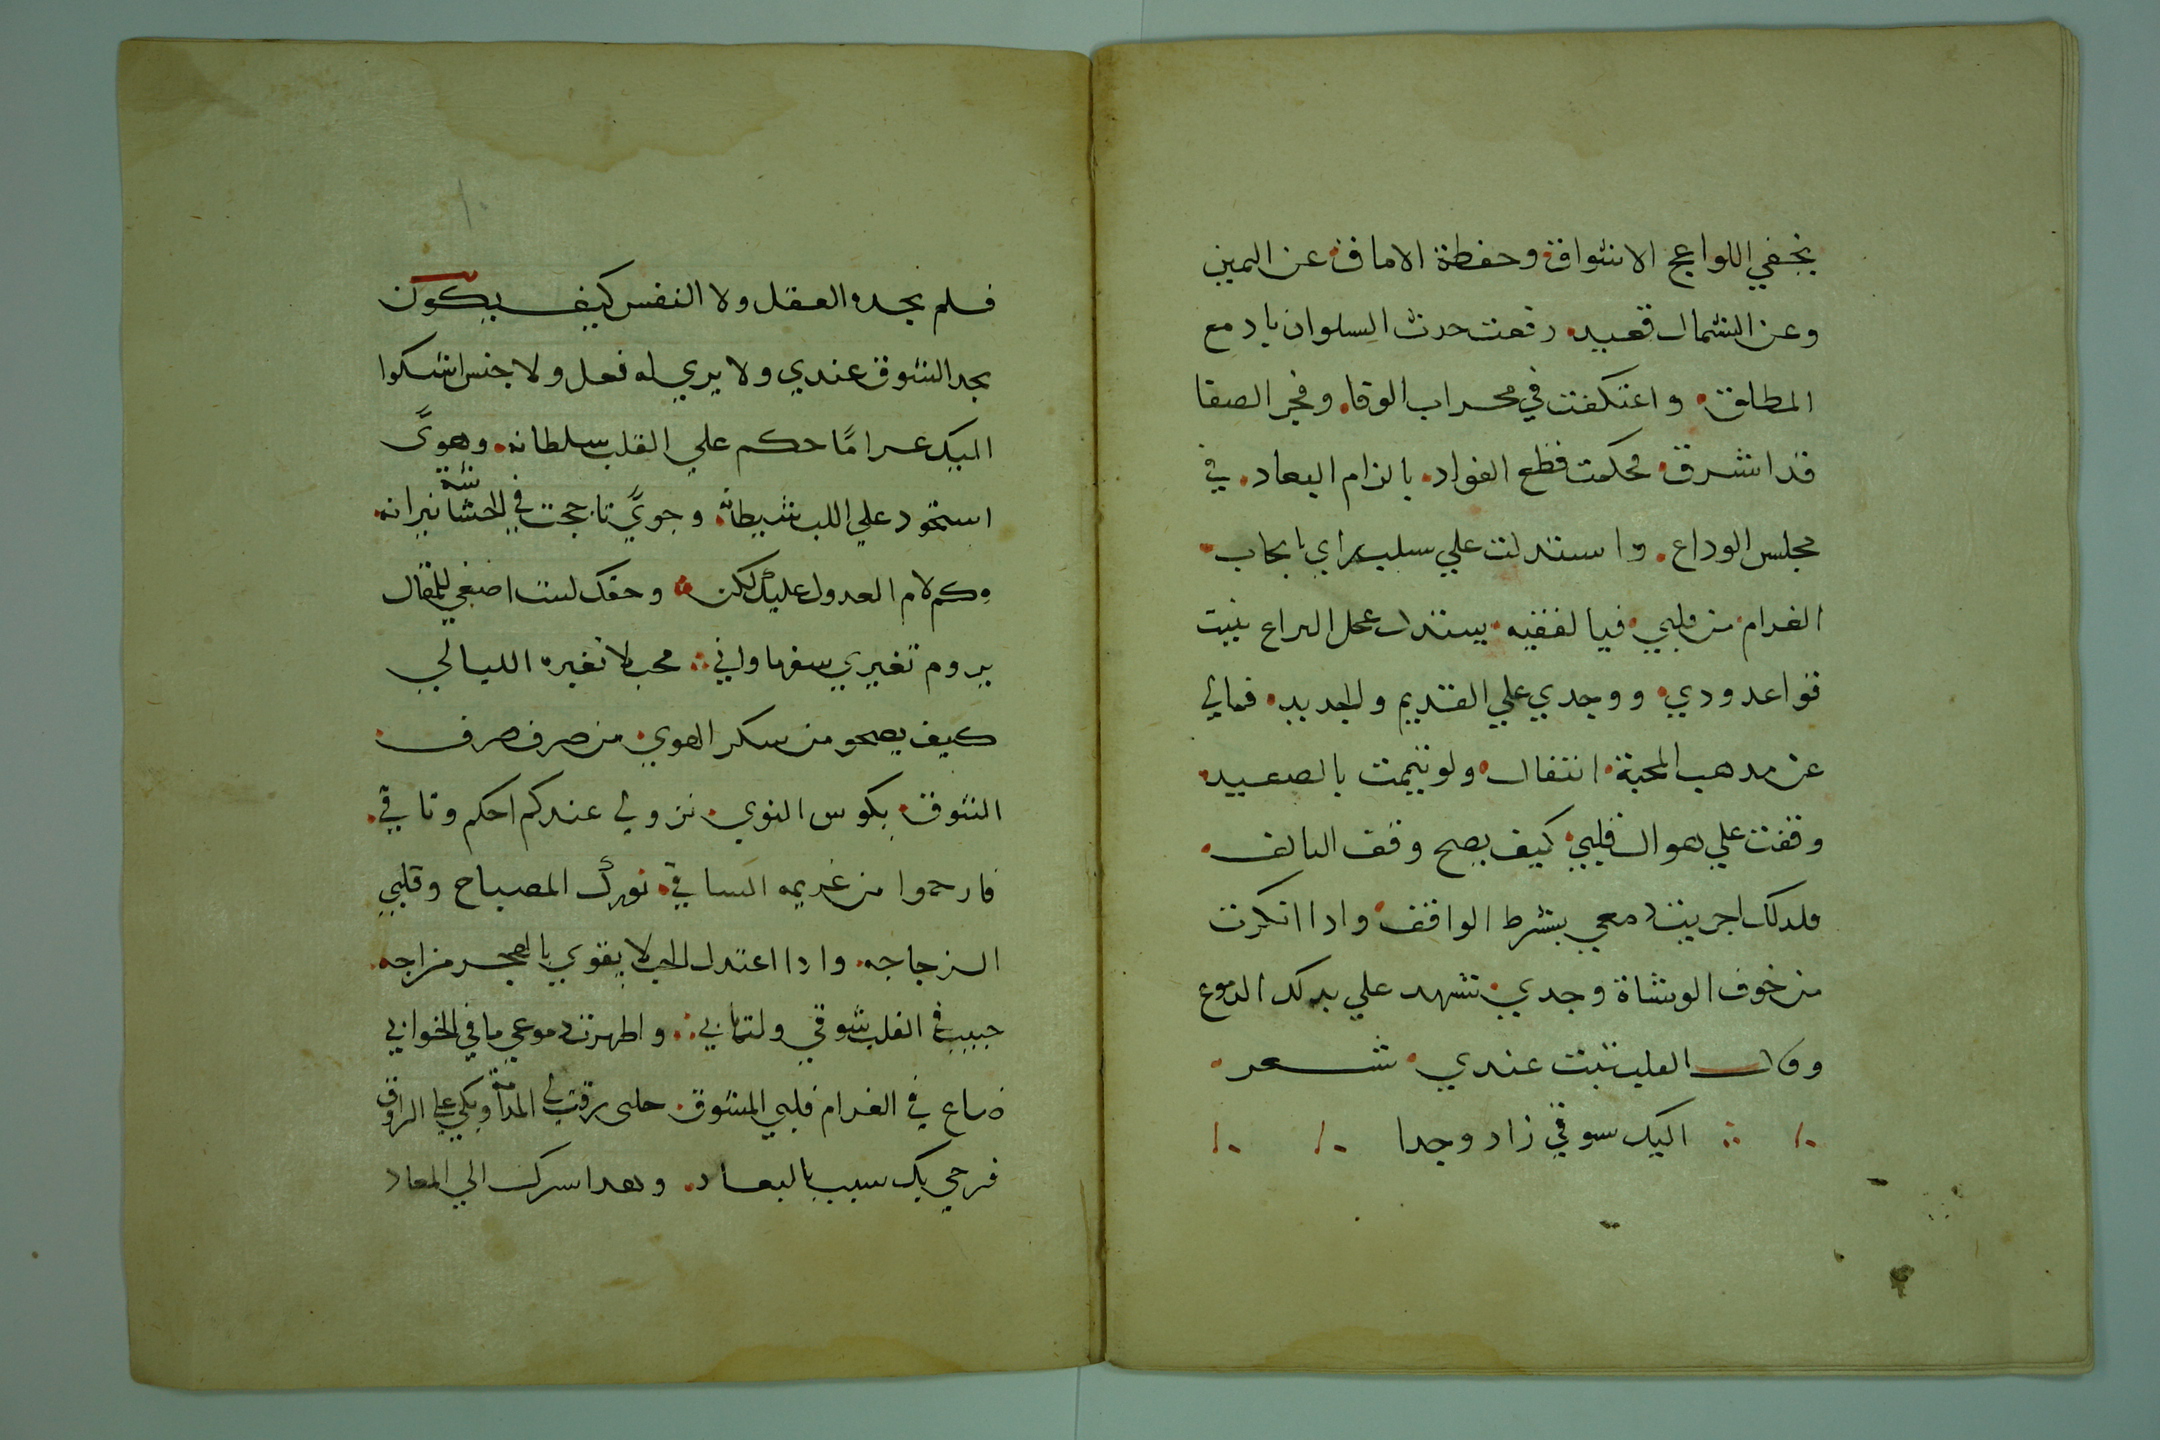 بخفي اللواعج الاشواق وحفظة الاماق عن اليمين
وعن الشمال قعيد رفعت حدث السلوان بادمع
المطلق واعتكفت في محراب الوفا وفجر الصفا
قد اشرق فحكمت قطع الفواد بالزام البعاد في
مجلس الوداع واستدلت علي سلب براي بايجاب
الغرام من قلبي فيا لفقيه يستدل عمل البراع بنيت
قواعد ودي ووجدي علي القديم والجديد فمالي
عن مدهب المحبة انتقال ولو تيممت بالصعيد
وقفت علي هوال قلبي كيف يصح وقف التالف
فلدلك اجريت دمعي بشرط الواقف وادا انكرت
من خوف الوشاة وجدي تشهد علي بدلك الدموع
وقال القلب تبت عندي شعر
اليك سوقي زاد وجدا
فلم يجده العقل ولا النفس كيف يكون
بجد الشوق عندي ولا يري له فعل ولا جنس اشكوا
اليك غراما حكم علي القلب سلطانه وهوي
استحود علي اللب شيطانه وجوي تاججت في الحشاشة نيرانه
وكم لام العدول عليك لكن وحقك لست اصغي للمقال
يروم تغيري سفها واني محب لا تغيره الليالي
كيف يصحو من سكر الهوي من صرف صرف
الشوق بكوس النوي نزولي عندكم احكم وتاقي
فارحموا من غريمه الساقي نورك المصباح وقلبي
الزجاجه وادا اعتدل الحب لا يقوي بالهجر مزاجه
حبيب في القلب شوقي والتهابي واظهرت دموعي ما في الخوابي
ضاع في الغرام قلبي المشوق حلي رقت لي المدامة وبكي علي الراوق
فرحي بك سيب بالبعاد وهدا سرك الي المعاد